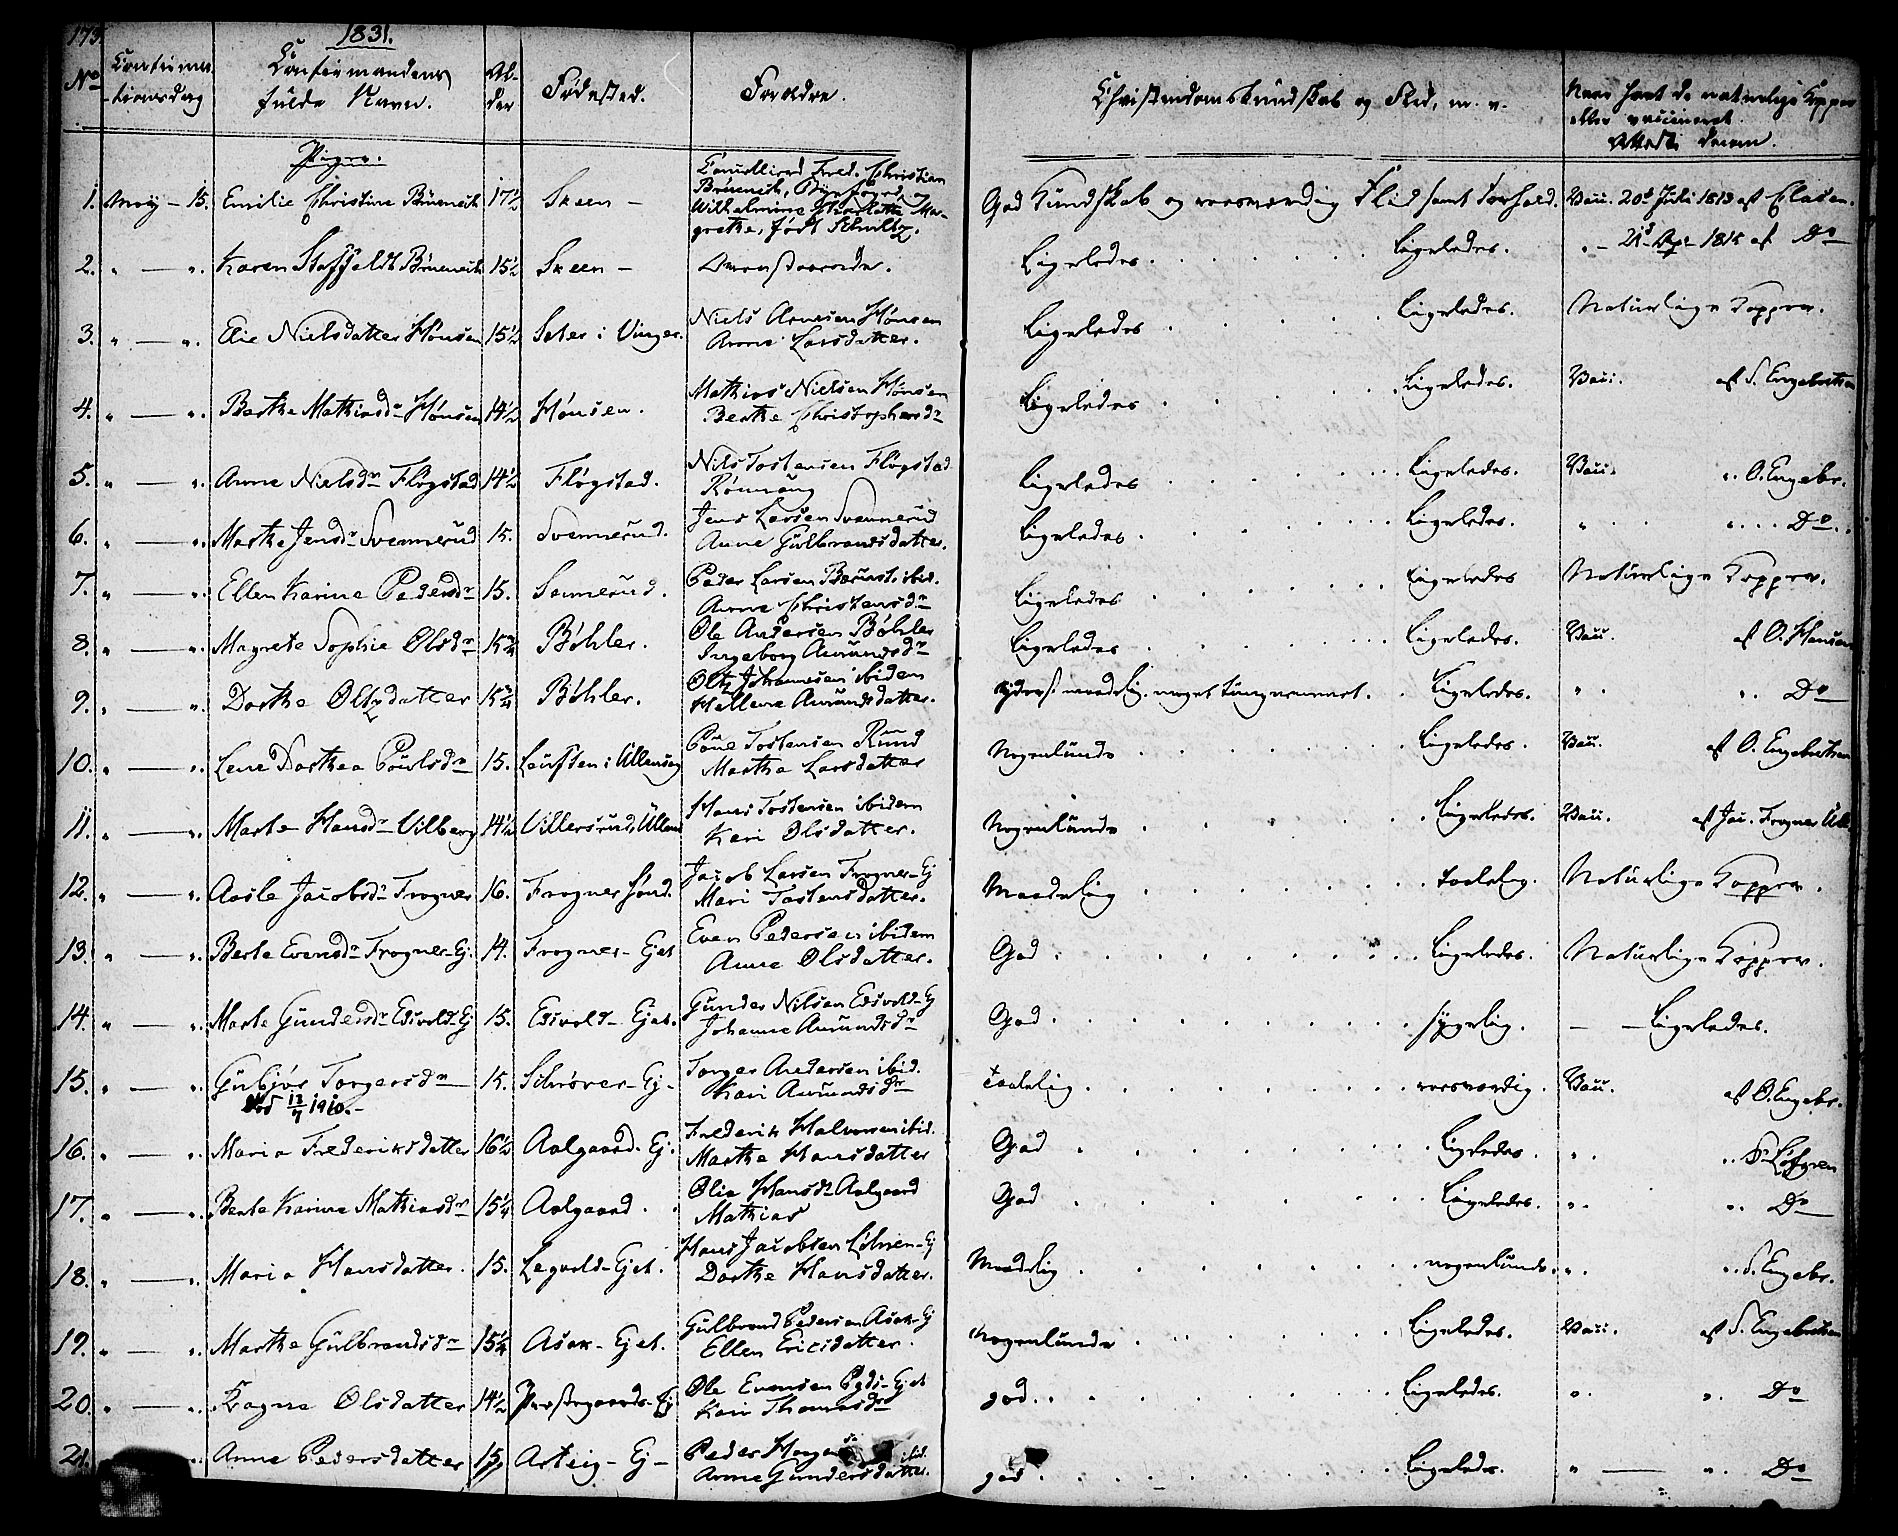 173.
1831.
No Confirma-tionsdag Confirmandens fulde Navn. Al-der Fødested. Forældre. Christendomskundskab og Flid, m. v. Naar havt de naturlige Kopper eller vaccineret. Attest derom.
Piger.
1. May - 15. Emilie Christine Brünech 17½ Skeen - Cancelliraad Fred. Christian Brünech, Byefoged, og Wilhelmine Charlotte Margrethe, født Schultz. God Kundskab og roesværdig Flid samt Forhold. Vacc. 20d Juli 1813 af Clasen.
2. " — ". Karen Staffeldt Brünech 15½ Skeen - Ovenstaaende. Ligeledes. Ligeledes. " - 21d Apr 1815 af Do
3. " — ". Elie Nielsdatter Hønsen 15½ Seter i Vinger. Niels Arnesen Hønsen Anne Larsdatter. Ligeledes Ligeledes. Naturlige Kopper.
4. " — ". Berthe Mathiasdr Hønsen 14½ Hønsen. Mathias Nielsen Hønsen Berthe Christophersdr Ligeledes Ligeledes. Vacc. af S. Engebretsen
5. " — ". Anne Nielsdr Fløgstad 14½ Fløgstad. Nils Tostensen Fløgstad Ligeledes Ligeledes. Vacc. ". O. Engebr.
6. " — ". Marthe Jensdr Svennerud 15. Svennerud. Jens Larsen Svennerud Anne Gulbrandsdatter. Ligeledes Ligeledes. " ". Do
7. " — ". Ellen Karine Pedersdr 15. Peder Larsen ibid. Anne Christensdr Ligeledes Ligeledes Naturlige Kopper.
8. " — ". Magrete Sophie Olsdr 15¾ Bøhler. Ole Andersen Bøhler Ingeborg Amundsdr Ligeledes Ligeledes. Vacc. af O. Hansen
9. " — ". Dorthe Oltzdatter 15¾ Bøhler. Oltz Johannesen ibidem Hellene Amundsdatter. yderst maadelig. meget tungnemmet. Ligeledes. " ". Do
10. " — ". Lene Dorthea Poulsdr 15. Laüsten i Ullensag Poul Tostensen Rund Marthe Larsdatter Nogenlunde Ligeledes. Vacc. af O. Engebretsen
11. " — ". Marte Hansdr Vilberg 14½ Villersrud, Ullens Hans Tostensen ibidem Kari Olsdatter. Nogenlunde Ligeledes. Vacc. af Jac. Frogner Ull.
12. " — ". Aasle Jacobsdr Frogner 16. Frogner sønd. Jacob Larsen Frogner-Ej Mari Tostensdatter. Maadelig taalelig. Naturlige Kopper.
13. " — ". Berte Evensdr Frogner-Ej. 14. Frogner-Ejet Even Pedersen ibidem Anne Olsdatter. God Ligeledes. Naturlige Kopper.
14. " — ". Marte Gundersdr Edsvold-Ej 15. Edsvold-Ejet. Gunder Nilsen Edsvold-Ej Johanne Amundsdr God sygelig. — — Ligeledes.
15. " — ". Gubjør Torgersdr 15. Schrøver-Ej- Torger Andersen ibid. Kari Amundsdr taalelig roesværdig. Vacc. af O. Engebr.
død 13/7 1910.-
16. " — ". Maria Frederiksdatter 16½ Aalgaard-Ej. Frederik Halvorsen ibid. Marthe Hansdatter God Ligeledes. " . ". Dr Løfgren
17. " — ". Berte Karine Mathiasdr 15¼ Aalgaard. Olia Hansdr Aalgaard Mathias God Ligeledes. ". ". Do
18. " — ". Maria Hansdatter. 15. Legvold-Ejet. Hans Jacobsen Løhren-Ej Dorthe Hansdatter. Maadelig nogenlunde. ". ". S. Engebr.
19. " — ". Marthe Gulbrandsdr 15¼ Asak-Ejet. Gulbrand Pedersen Asak-Ej Ellen Ericsdatter. Nogenlunde Ligeledes. Vacc. af S. Engebretsen
20. " — ". Ragne Olsdatter 14½ Præstegaards-Ej Ole Evensen Pgds-Ejet Kari Thomasdr god. Ligeledes. ". ". Do
21. ". Anne Pedersdatter 15 Arteig-Ej- Peder ibid. Anne Gundersdatter. god. Ligeledes. " — ". Do